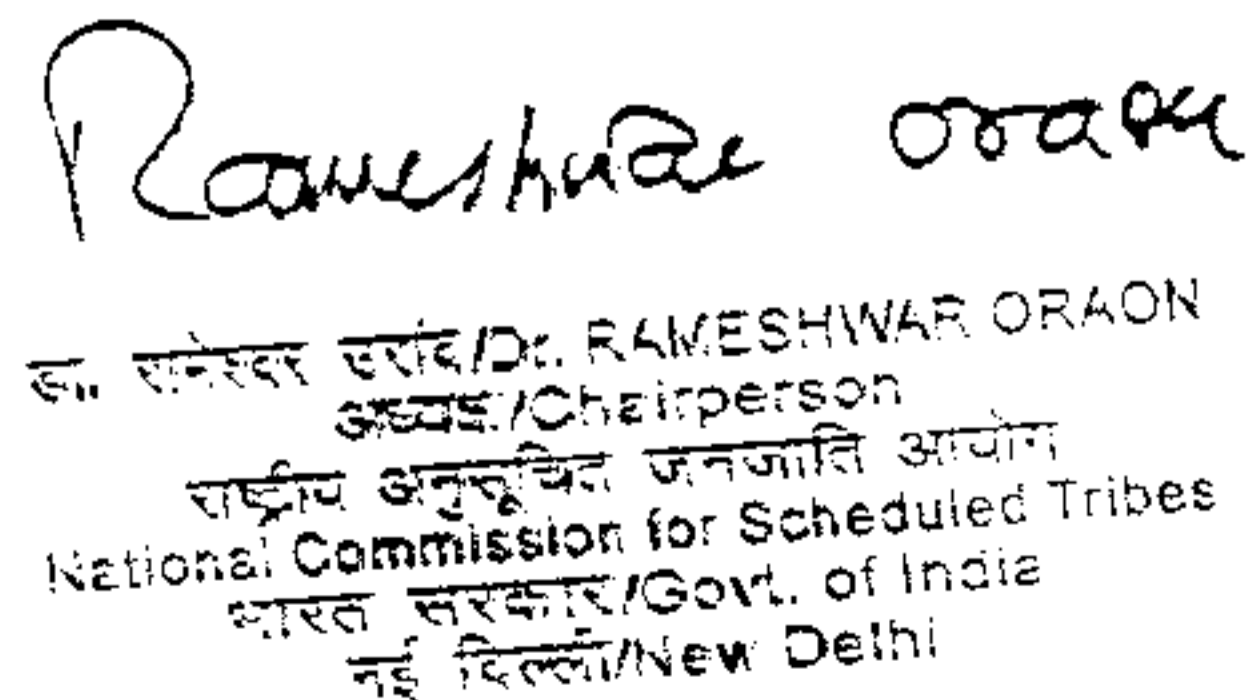 Rameshwar oraon
डा. रामेश्वर उरांव/Dr. RAMESHWAR ORAON
अध्यक्ष/Chairperson
राष्ट्रीय अनुसूचित जनजाति आयोग
National Commission for Scheduled Tribes
भारत सरकार/Govt. of India
नई दिल्ली/New Delhi